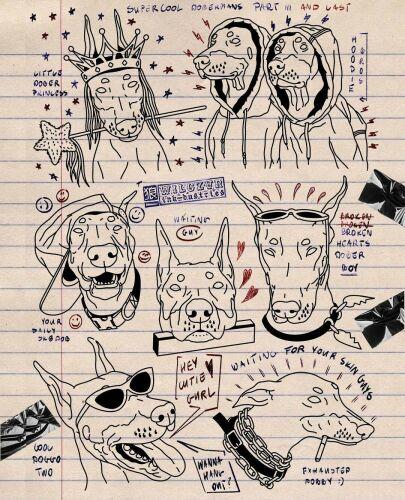 SUPERCOOL DOBERMANS PART III AND LAST
LITTLE
DOBER
PRINCESS
HOODIE
BROS
WAITING
GUY
BROKEN
BROKEN
HEARTS
DOBER
BOY
YOUR
DAILY
HEY
CUTIE
GURL
WANNA
HANG
OUT?
COOL
DOGGO
TWO
WAITING FOR YOUR SKIN GUYS
EXHAUSTED
BOBBY :)